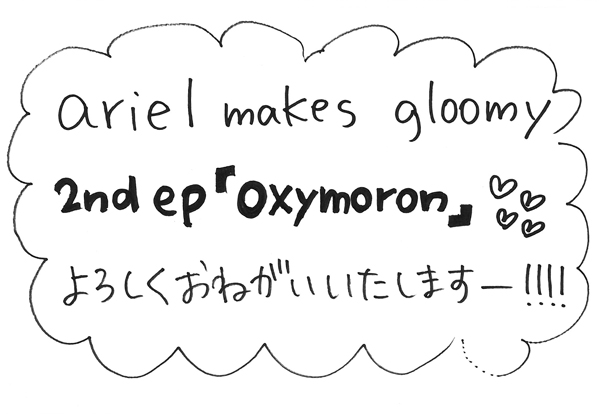 ariel makes gloomy
2nd ep『oxymoron』♡♡♡♡
よろしくおねがいいたしますー!!!!